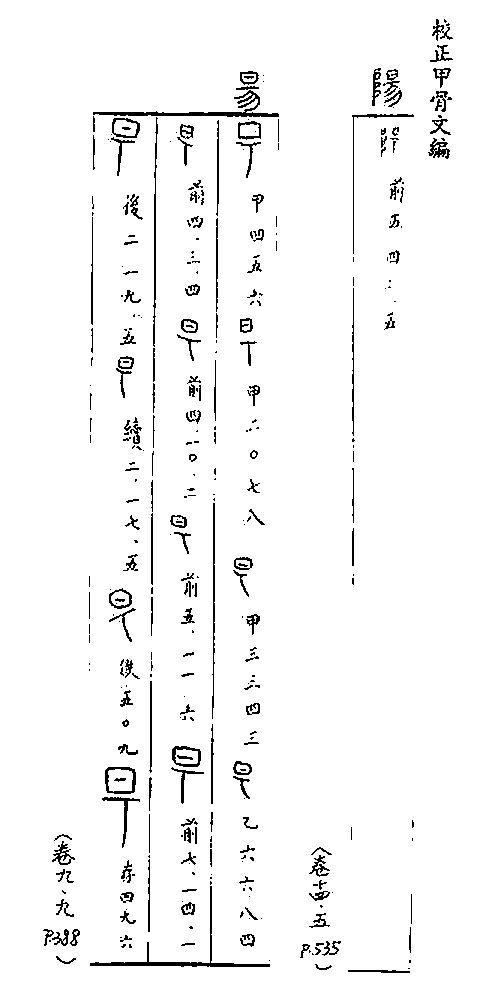 校正甲骨文編
陽
前五四二.五
(卷十四.五
P.535)
昜
甲四五六 甲二〇七八 甲三三四三 乙六六八四
前四.三.四 前四.一〇.二 前五.一一六 前七.一四.一
後二一九.五 續二.一七.五 佚五〇九 存四九六
(卷九.九
P.388)